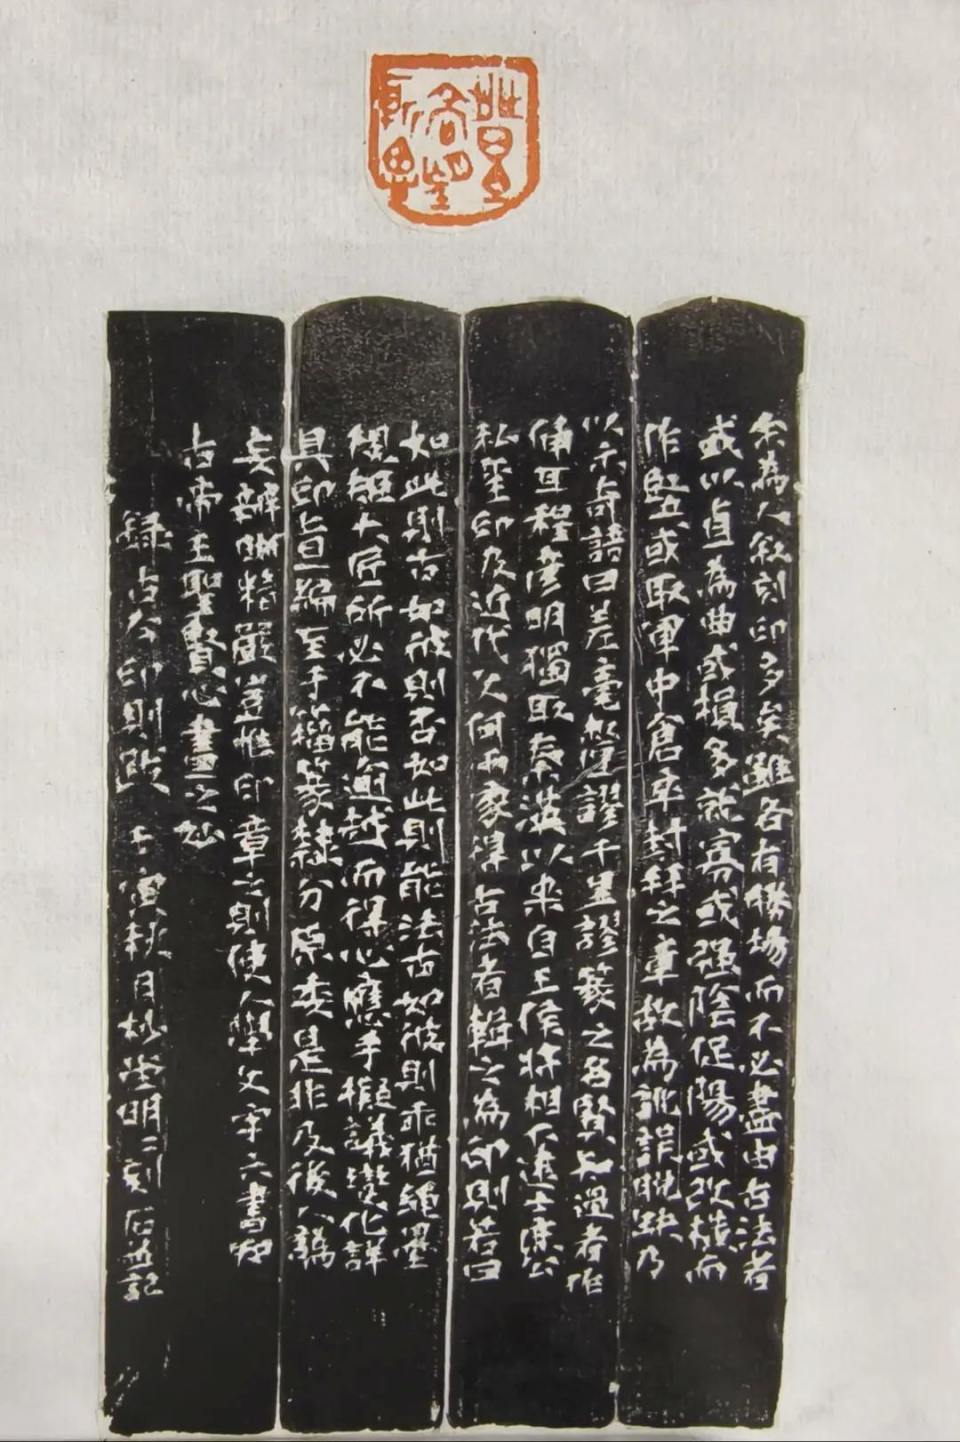 余為人敘刻印多矣雖各有勝場而不必盡由古法者
或以直為曲或損多就寡或強陰促陽或改橫而
作竪或取軍中倉卒封拜之章故為訛誤脫缺乃
以示奇語曰差毫釐謬千里謬篆之名賢知過者作
俑耳程彥明獨取秦漢以來自王侯將相下逮士庶公
私璽印及近代文何兩家得古法者輯之為印則若曰
如此則古如彼則否如此則能法古如彼則乖猶繩墨
規矩大匠所必不能逾越而得心應手擬議變化詳
具印旨編至于籀篆隸分原委是非及後人譌
妄辭嚴豈惟印章之則使人學文字六書知
古帝王聖賢心畫之妙
錄古今印則跋 壬寅秋月 明二刻石並記